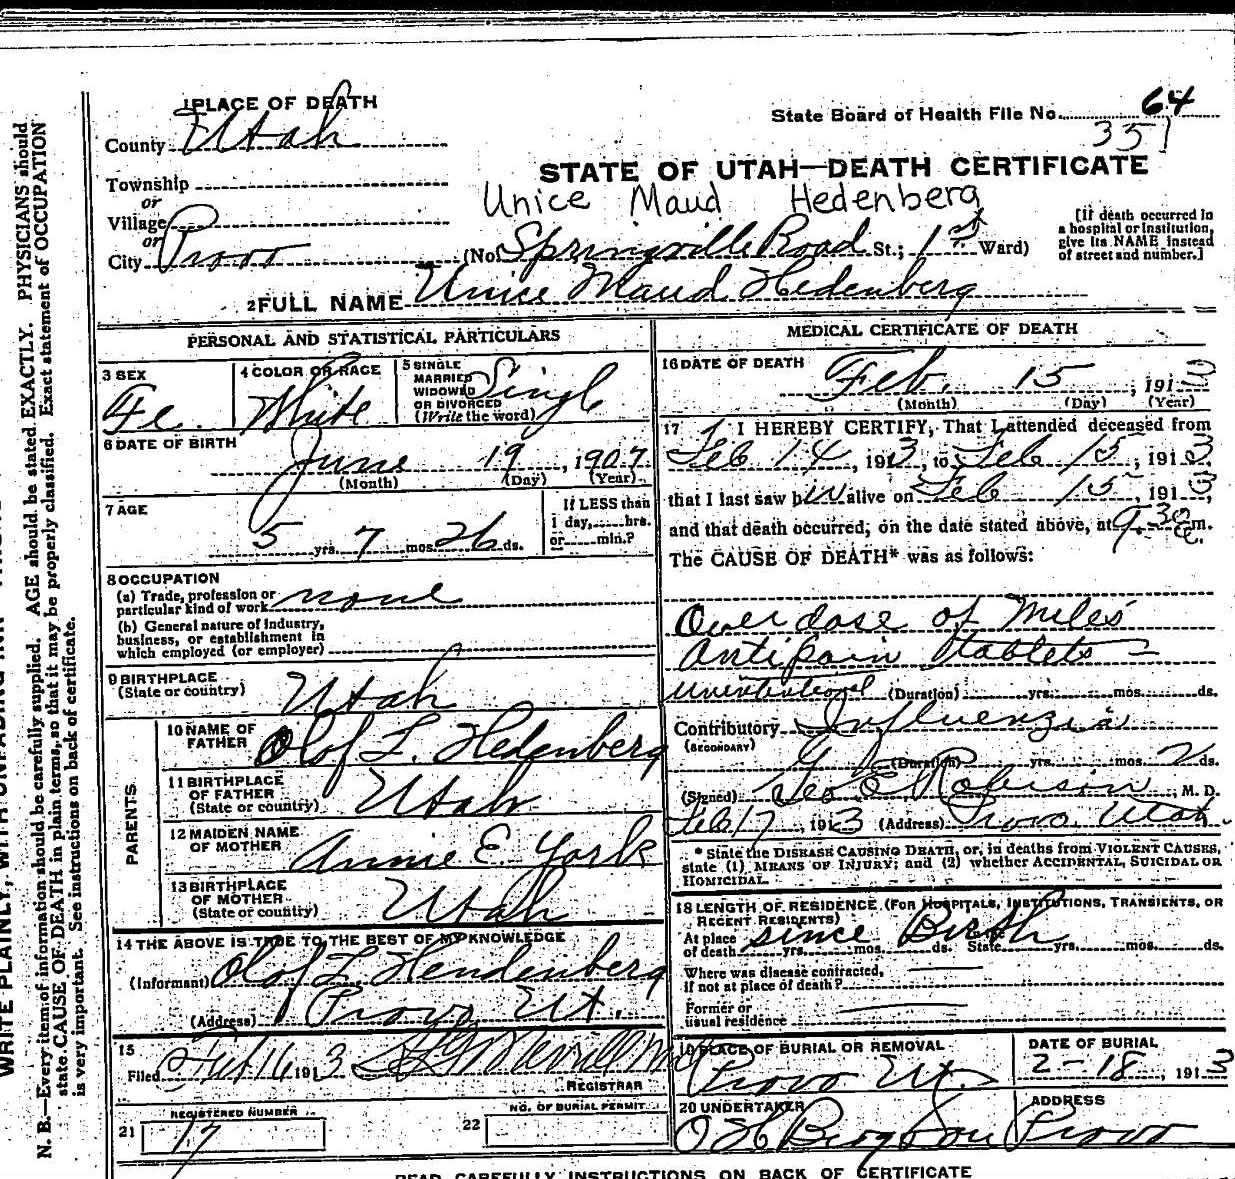 1 PLACE OF DEATH
State Board of Health File No. 64
351
County Utah
STATE OF UTAH—DEATH CERTIFICATE
Township
or
Unice Maud Hedenberg
Village
or
City Provo
(No. Springville Road St.; 1st Ward)
[If death occurred in
a hospital or institution,
give its NAME instead
of street and number.]
2 FULL NAME Unice Maud Hedenberg
PERSONAL AND STATISTICAL PARTICULARS
3 SEX
Fe.
4 COLOR OR RACE
White
5 SINGLE
MARRIED
WIDOWED
OR DIVORCED
(Write the word)
Singl
6 DATE OF BIRTH
June 19, 1907
(Month) (Day) (Year)
7 AGE
5 yrs. 7 mos. 26 ds.
If LESS than
1 day,......hrs.
or......min.?
8 OCCUPATION
(a) Trade, profession or
particular kind of work none
(b) General nature of industry,
business, or establishment in
which employed (or employer)
9 BIRTHPLACE
(State or country)
Utah
PARENTS
10 NAME OF
FATHER
Olof L. Hedenberg
11 BIRTHPLACE
OF FATHER
(State or country)
Utah
12 MAIDEN NAME
OF MOTHER
Annie E. York
13 BIRTHPLACE
OF MOTHER
(State or country)
Utah
14 THE ABOVE IS TRUE TO THE BEST OF MY KNOWLEDGE
(Informant) Olof L. Hendenberg
(Address) Provo Ut.
15
Filed Feb 16 1913 Merrill
REGISTRAR
REGISTERED NUMBER
21 17
NO. OF BURIAL PERMIT
22
MEDICAL CERTIFICATE OF DEATH
16 DATE OF DEATH
Feb. 15, 1913
(Month) (Day) (Year)
17 I HEREBY CERTIFY, That I attended deceased from
Feb 14, 1913, to Feb 15, 1913
that I last saw h in alive on Feb 15, 1913,
and that death occurred, on the date stated above, at 9.30 a.m.
The CAUSE OF DEATH* was as follows:
Over dose of Miles'
Antipain tablets
unintentional (Duration) yrs. mos. ds.
Contributory Influenzia
(SECONDARY)
(Duration) yrs. mos. 2 ds.
(Signed) Geo E Robison, M. D.
Feb 17, 1913 (Address) Provo. Utah.
* State the DISEASE CAUSING DEATH, or, in deaths from VIOLENT CAUSES,
state (1) MEANS OF INJURY; and (2) whether ACCIDENTAL, SUICIDAL OR
HOMICIDAL.
18 LENGTH OF RESIDENCE (FOR HOSPITALS, INSTITUTIONS, TRANSIENTS, OR
RECENT RESIDENTS)
At place
of death yrs. mos. ds. State yrs. mos. ds.
since Birth
Where was disease contracted,
if not at place of death?
Former or
usual residence
19 PLACE OF BURIAL OR REMOVAL
Provo Ut.
DATE OF BURIAL
2-18, 1913
20 UNDERTAKER
ADDRESS
Provo
READ CAREFULLY INSTRUCTIONS ON BACK OF CERTIFICATE
N. B.—Every item of information should be carefully supplied. AGE should be stated EXACTLY. PHYSICIANS should
state CAUSE OF DEATH in plain terms, so that it may be properly classified. Exact statement of OCCUPATION
is very important. See instructions on back of certificate.
WRITE PLAINLY, WITH UNFADING INK